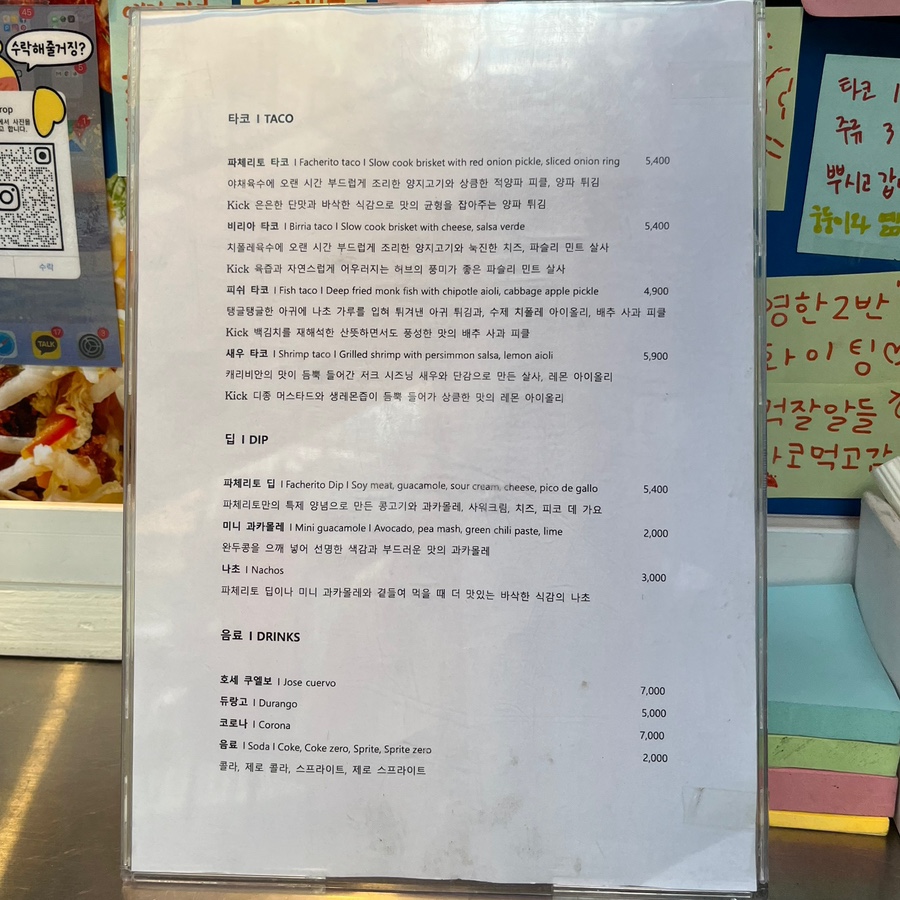 타코 I TACO
파체리토 타코 I Facherito taco I Slow cook brisket with red onion pickle, sliced onion ring 5,400
야채육수에 오랜 시간 부드럽게 조리한 양지고기와 상큼한 적양파 피클, 양파 튀김
Kick 은은한 단맛과 바삭한 식감으로 맛의 균형을 잡아주는 양파 튀김
비리아 타코 I Birria taco I Slow cook brisket with cheese, salsa verde 5,400
치폴레육수에 오랜 시간 부드럽게 조리한 양지고기와 눅진한 치즈, 파슬리 민트 살사
Kick 육즙과 자연스럽게 어우러지는 허브의 풍미가 좋은 파슬리 민트 살사
피쉬 타코 I Fish taco I Deep fried monk fish with chipotle aioli, cabbage apple pickle 4,900
탱글탱글한 아귀에 나초 가루를 입혀 튀겨낸 아귀 튀김과, 수제 치폴레 아이올리, 배추 사과 피클
Kick 백김치를 재해석한 산뜻하면서도 풍성한 맛의 배추 사과 피클
새우 타코 I Shrimp taco I Grilled shrimp with persimmon salsa, lemon aioli 5,900
캐리비안의 맛이 듬뿍 들어간 저크 시즈닝 새우와 단감으로 만든 살사, 레몬 아이올리
Kick 디종 머스타드와 생레몬즙이 듬뿍 들어가 상큼한 맛의 레몬 아이올리
딥 I DIP
파체리토 딥 I Facherito Dip I Soy meat, guacamole, sour cream, cheese, pico de gallo 5,400
파체리토만의 특제 양념으로 만든 콩고기와 과카몰레, 사워크림, 치즈, 피코 데 가요
미니 과카몰레 I Mini guacamole I Avocado, pea mash, green chili paste, lime 2,000
완두콩을 으깨 넣어 선명한 색감과 부드러운 맛의 과카몰레
나초 I Nachos 3,000
파체리토 딥이나 미니 과카몰레와 곁들여 먹을 때 더 맛있는 바삭한 식감의 나초
음료 I DRINKS
호세 쿠엘보 I Jose cuervo 7,000
듀랑고 I Durango 5,000
코로나 I Corona 7,000
음료 I Soda I Coke, Coke zero, Sprite, Sprite zero 2,000
콜라, 제로 콜라, 스프라이트, 제로 스프라이트
수락해줄거징?
수락
TALK
17
45
타코 1
주류 3
뿌시고 갑
궁둥이와
영한2반
화이팅♡
먹잘알들
타코먹고감